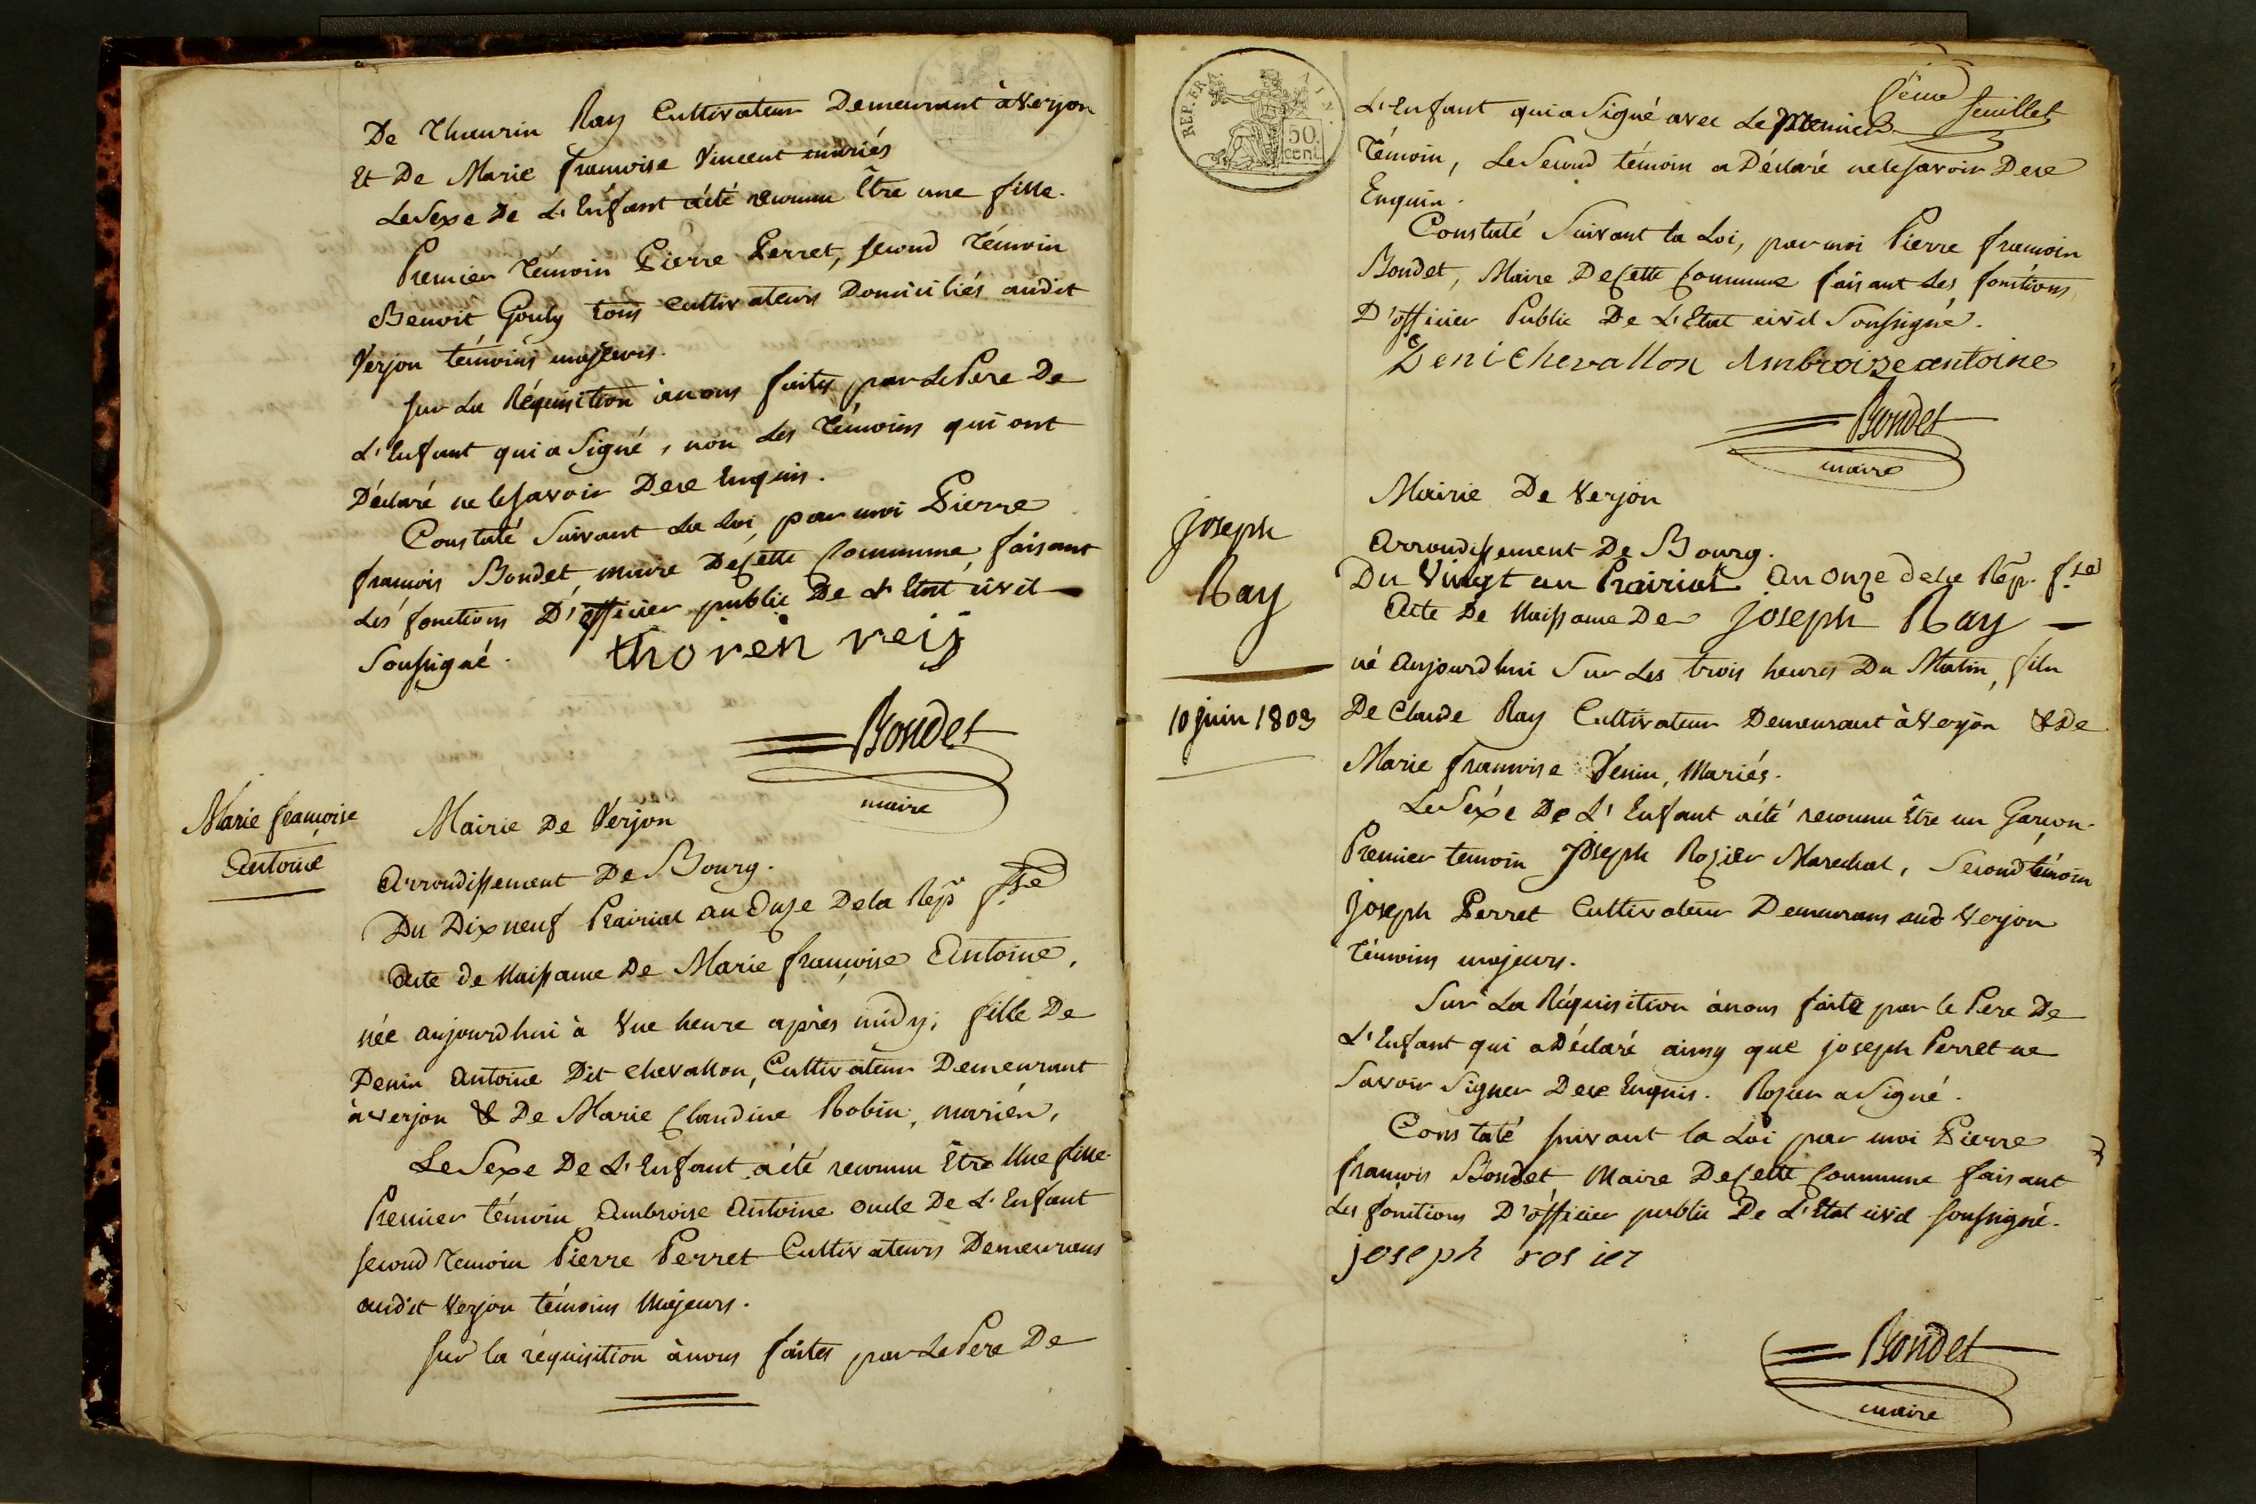 De Thaurin Ray Cultivateur Demeurant à Verjon
Et De Marie françoise Vincent mariés
Le Sexe De L'Enfant a été reconnu Être une fille.
Premier Témoin Pierre Perret, second Témoin
Benoit Gouly tous cultivateurs Domiciliés audit
Verjon témoins majeurs.
Sur La Réquisition à nous faites par Le Pere De
L'Enfant qui a Signé, non Les Témoins qui ont
Déclaré ne le savoir De ce Enquis.
Constaté Suivant La Loi, par moi Pierre
françois Bondet, maire De Cette Commune, faisant
Les fonctions D'officier public De L'Etat civil
Soussigné.
thoren reij
Bondet
maire
Marie françoise
Antoine
Mairie De Verjon
Arrondissement De Bourg.
Du Dix neuf Prairial an Onze De la Rép. fse
Acte de Naissance De Marie françoise Antoine,
née aujourdhui à Une heure après midy; fille De
Denin Antoine Dit chevallon, Cultivateur Demeurant
à Verjon & De Marie Claudine Robin, mariés,
Le Sexe De L'Enfant a été reconnu Être Une fille.
Premier témoin Ambroise Antoine oncle De L'Enfant
second Temoin Pierre Perret Cultivateurs Demeurans
audit Verjon témoins Majeurs.
Sur la réquisition à nous faites par Le Pere De
REP. FRA. AIN.
50 cent.
feuillet
L'Enfant qui a Signé avec Le Premier
Témoin, Le Second témoin a Déclaré ne le savoir De ce
Enquis.
Constaté Suivant la Loi, par moi Pierre françois
Bondet, Maire De Cette Commune faisant Les fonctions
D'officier Public De L'Etat civil Soussigné.
Deni Chevallon Ambroize antoine
Bondet
maire
Joseph
Ray
10 juin 1803
Mairie De Verjon
Arrondissement De Bourg.
Du Vingt un Prairial An Onze de la Rép. fse
Acte De Naissance De Joseph Ray
né Aujourdhui Sur Les trois heures Du Matin, fils
De Claude Ray Cultivateur Demeurant à Verjon & De
Marie françoise Venin, Mariés.
Le Séxe De L'Enfant a été reconnu Être un Garçon.
Premier temoin Joseph Rozier Marechal, Second témoin
Joseph Perret Cultivateur Demeurans aud Verjon
Témoins majeurs.
Sur La Réquisition à nous faite par le Pere De
L'Enfant qui a Déclaré ainsy que joseph Perret ne
Savoir Signer De ce Enquis. Rozier a Signé.
Constaté suivant la Loi par moi Pierre
françois Bondet Maire De Cette Commune faisant
Les fonctions D'officier public De L'Etat civil soussigné.
joseph rosier
Bondet
maire